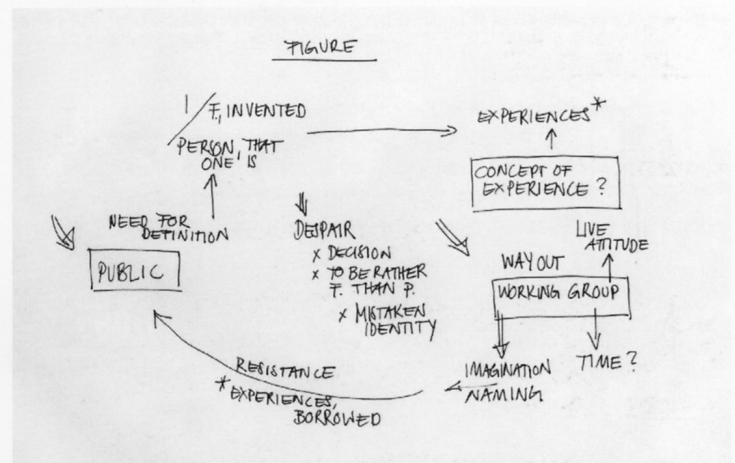 FIGURE
1/
F., INVENTED
PERSON, THAT
ONE IS
EXPERIENCES*
CONCEPT OF
EXPERIENCE?
NEED FOR
DEFINITION
PUBLIC
DESPAIR
x DECISION
x TO BE RATHER
F. THAN P.
x MISTAKEN
IDENTITY
LIVE
ATTITUDE
WAY OUT
WORKING GROUP
IMAGINATION
NAMING
TIME?
RESISTANCE
*EXPERIENCES,
BORROWED